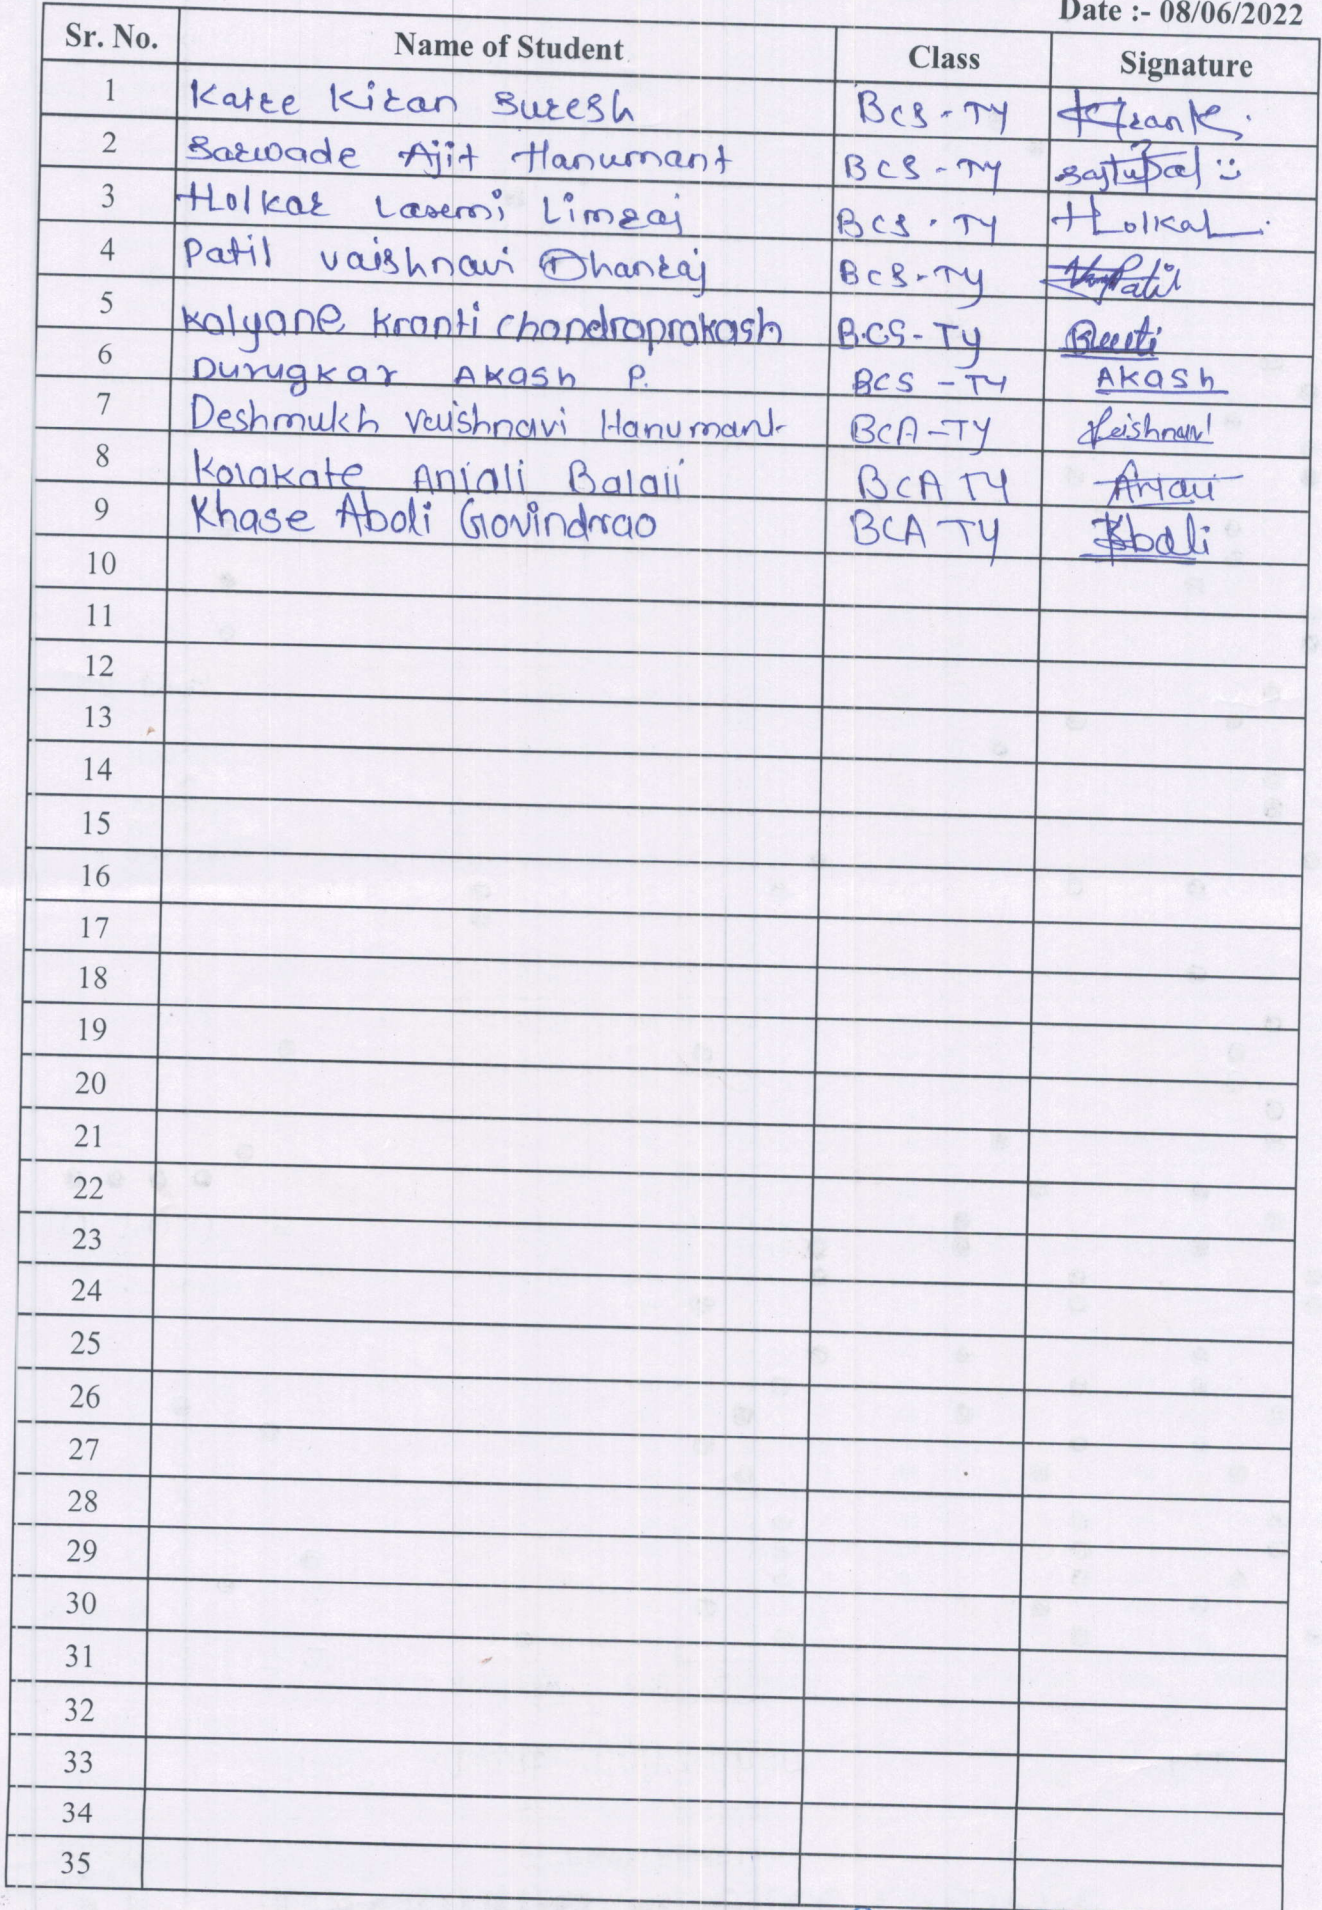 Date :- 08/06/2022
Sr. No. Name of Student Class Signature
1 Katre Kiran Suresh BCS - TY KiranK.
2 Sarwade Ajit Hanumant BCS - TY
3 Holkar Laxmi Limraj BCS - TY Holkar
4 Patil Vaishnavi Dhanraj BCS - TY Patil
5 Kalyane Kranti Chandraprakash BCS - TY
6 Durugkar Akash P. BCS - TY AKash
7 Deshmukh Vaishnavi Hanumant BCA - TY Vaishnavi
8 Kolakate Anjali Balaji BCA TY Anjali
9 Khase Aboli Govindrao BCA TY Aboli
10
11
12
13
14
15
16
17
18
19
20
21
22
23
24
25
26
27
28
29
30
31
32
33
34
35